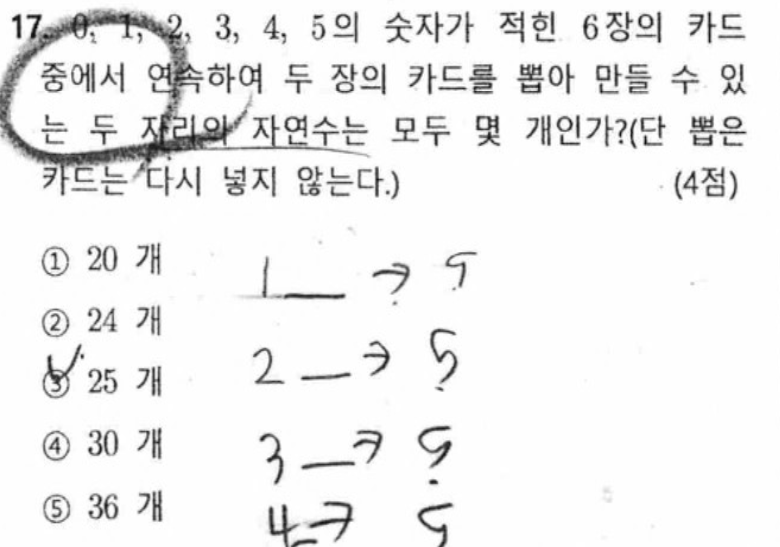 17. 0, 1, 2, 3, 4, 5의 숫자가 적힌 6장의 카드
중에서 연속하여 두 장의 카드를 뽑아 만들 수 있
는 두 자리의 자연수는 모두 몇 개인가?(단 뽑은
카드는 다시 넣지 않는다.) (4점)
① 20 개
1 _ → 5
② 24 개
③ 25 개
2 _ → 5
④ 30 개
3 _ → 5
⑤ 36 개
4 → 5